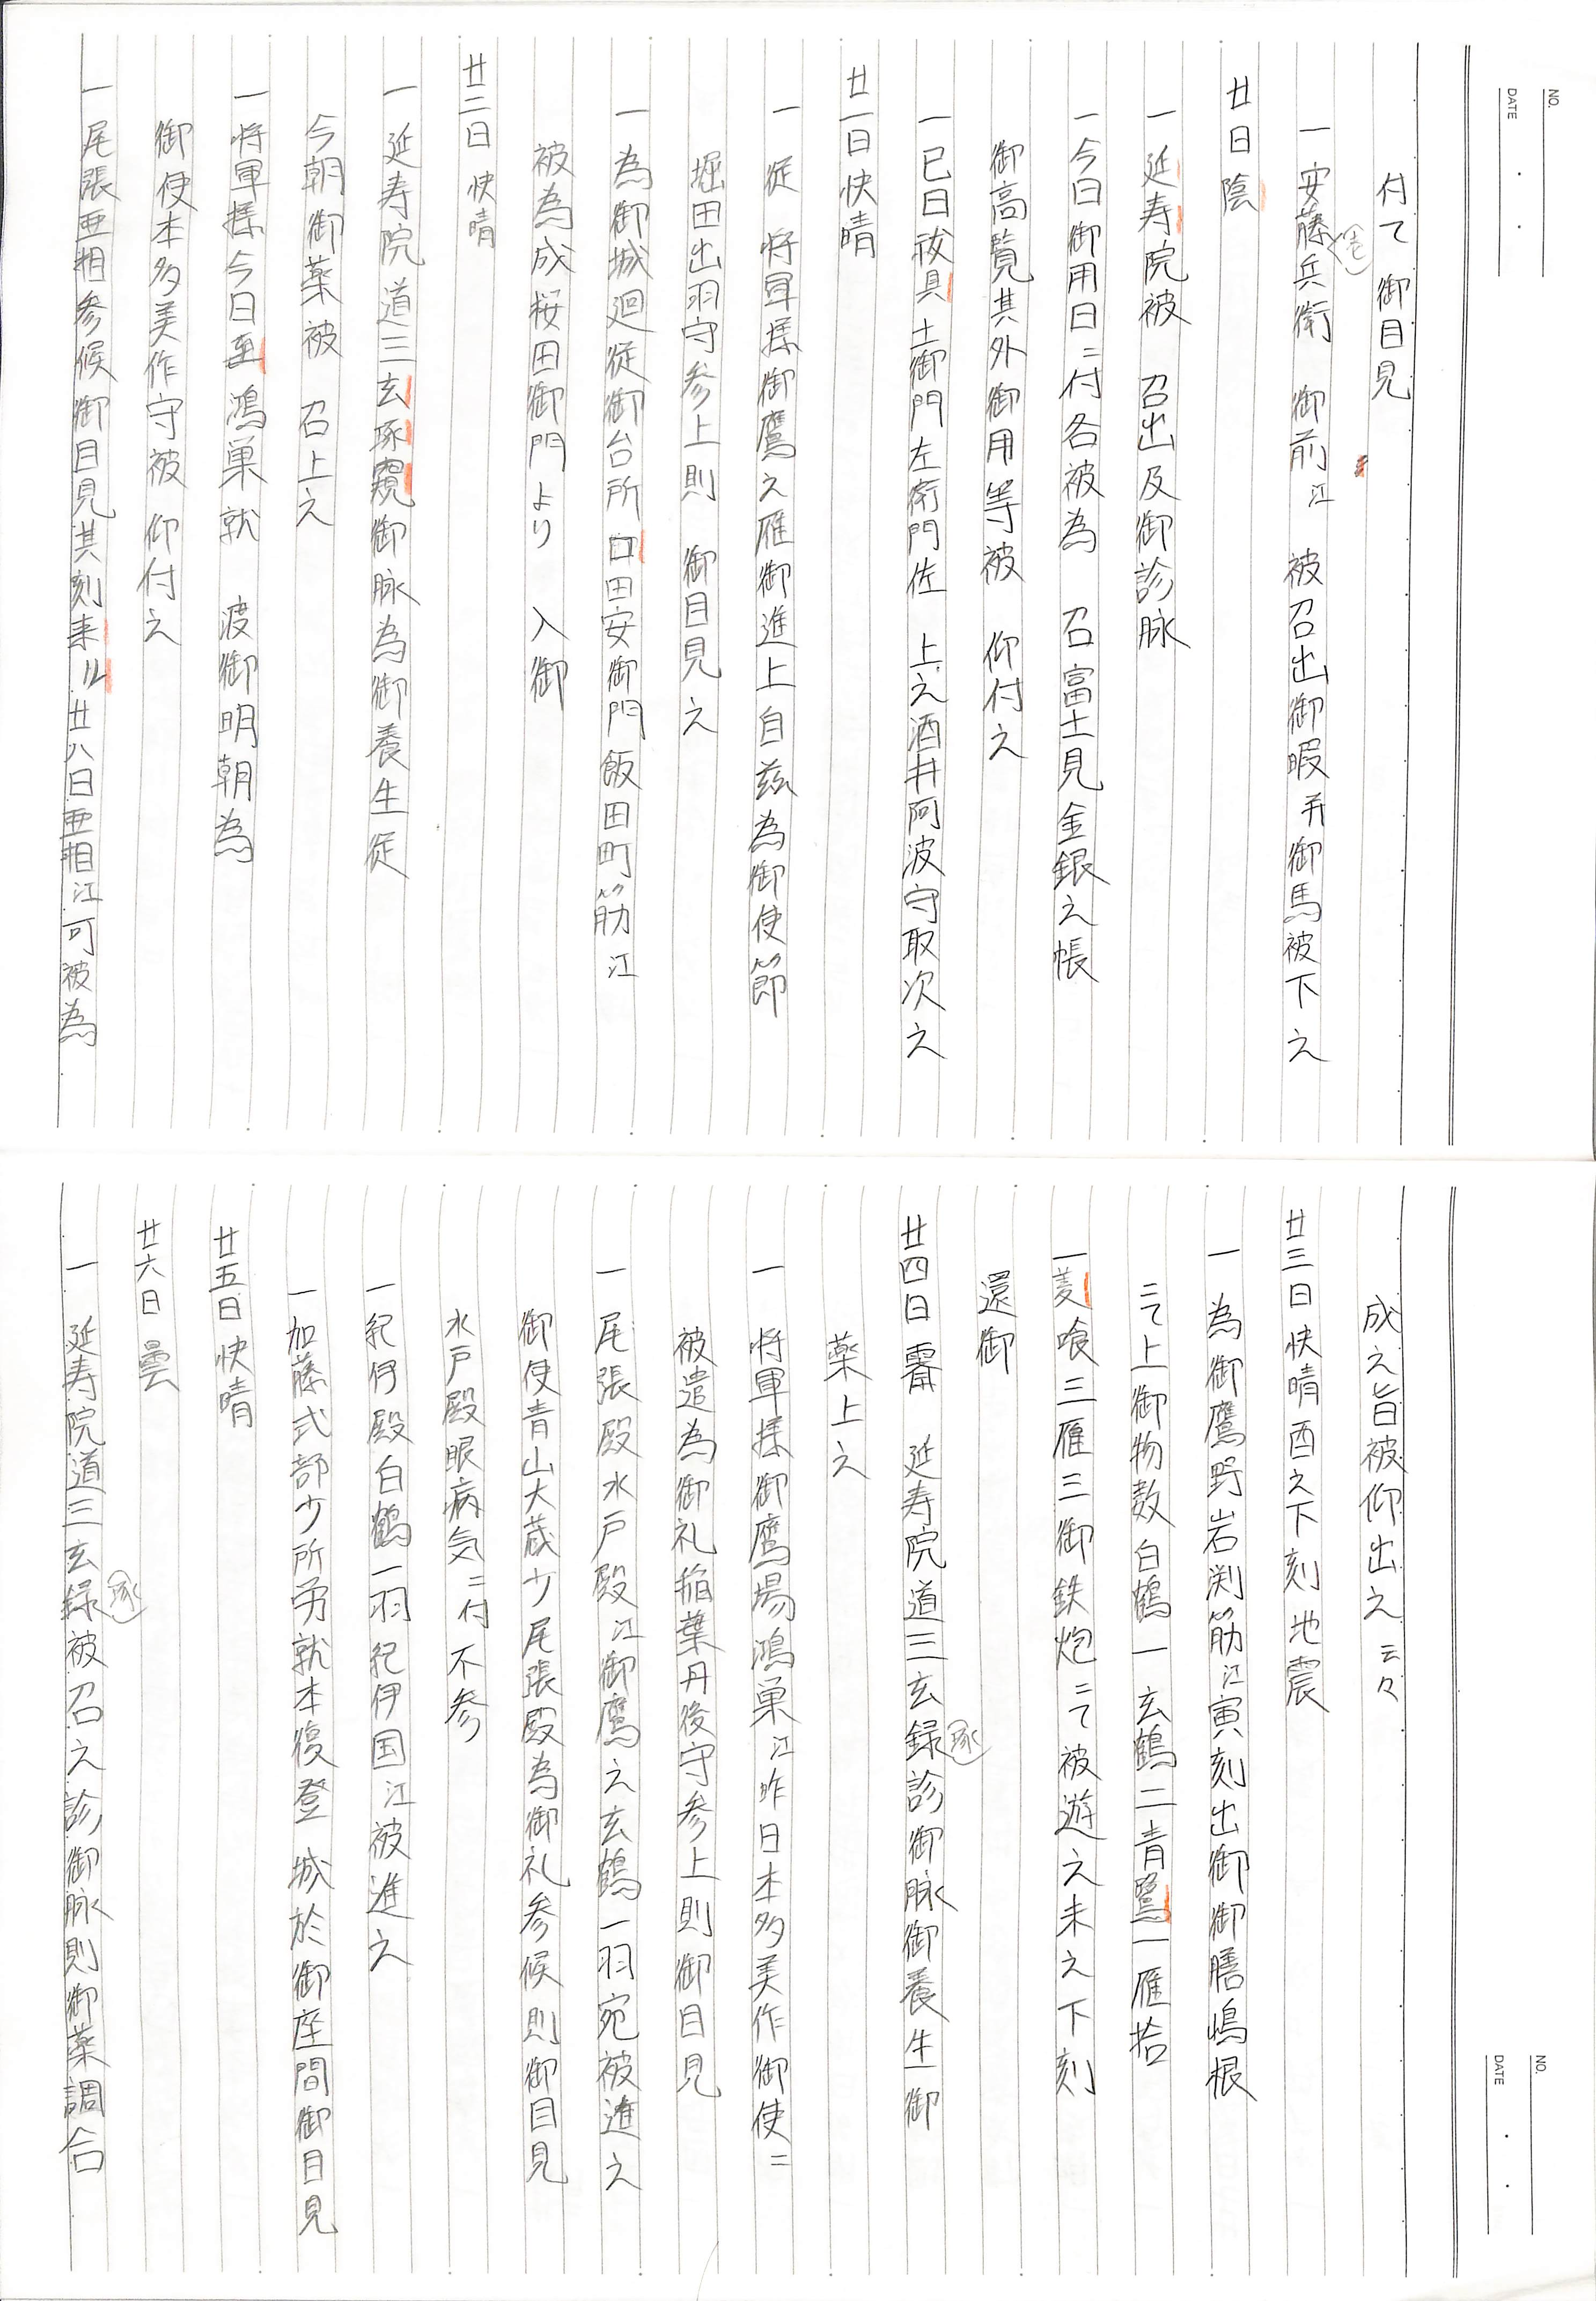 NO.
DATE
付て御目見
一安藤兵衛 御前江 被召出御暇并御馬被下之
廿日陰
一延寿院被 召出及御診脉
一今日御用日ニ付各被為 召富士見金銀之帳
御高覧其外御用等被 仰付之
一巳日祓具 土御門左衛門佐 上之酒井阿波守取次之
廿一日快晴
一従 将軍様御鷹之雁御進上自茲為御使節
堀田出羽守参上則 御目見之
一為御城廻従御台所口田安御門飯田町筋江
被為成桜田御門より 入御
廿二日快晴
一延寿院道三玄琢窺御脉為御養生従
今朝御薬被 召上之
一将軍様今日至鴻巣就 渡御明朝為
御使本多美作守被 仰付之
一尾張亜相参候御目見其刻来ル廿八日亜相江可被為
NO.
DATE
成之旨被仰出之云々
廿三日快晴酉之下刻地震
一為御鷹野岩渕筋江寅刻出御御膳嶋根
ニて上御物数白鶴一玄鶴二青鷺一雁拾
一菱喰三雁三御鉄炮ニて被遊之未之下刻
還御
廿四日霽 延寿院道三玄録診御脉御養生御
琢
薬上之
一将軍様御鷹場鴻巣江昨日本多美作御使ニ
被遣為御礼稲葉丹後守参上則御目見
一尾張殿水戸殿江御鷹之玄鶴一羽宛被進之
御使青山大蔵少尾張殿為御礼参候則御目見
水戸殿眼病気ニ付不参
一紀伊殿白鶴一羽紀伊国江被進之
一加藤式部少所労就本復登 城於御座間御目見
廿五日快晴
廿六日 曇
一延寿院道三玄録被召之診御脉則御薬調合
琢